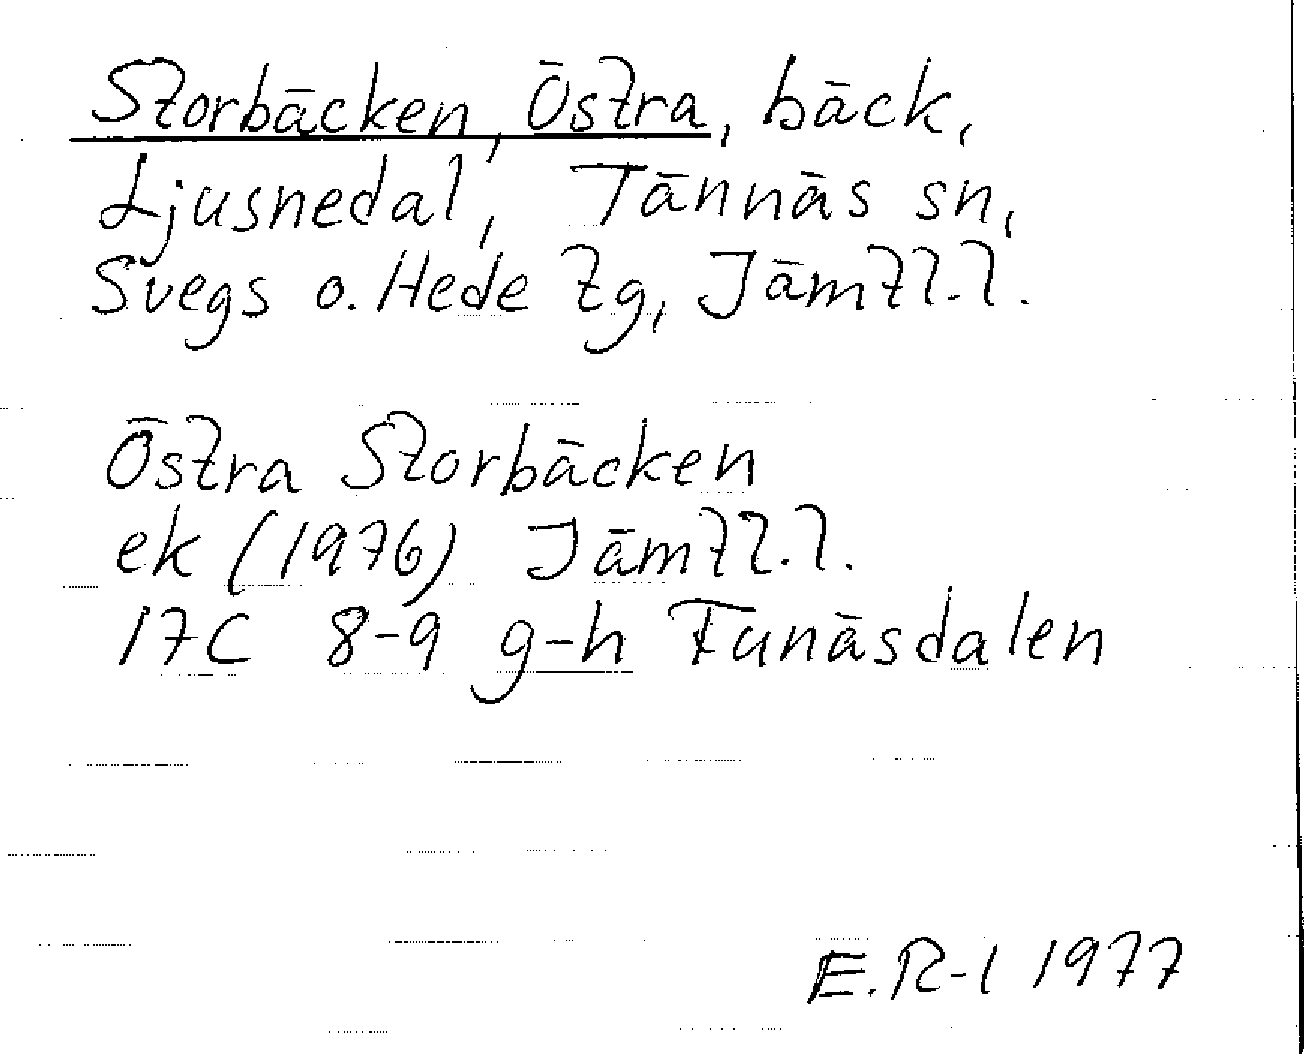 Storbäcken, Östra, bäck,
Ljusnedal, Tännäs sn,
Svegs o. Hede tg, Jämtl.l.
Östra Storbäcken
ek (1976) Jämtl.l.
17C 8-9 g-h Funäsdalen
E.R-l 1977